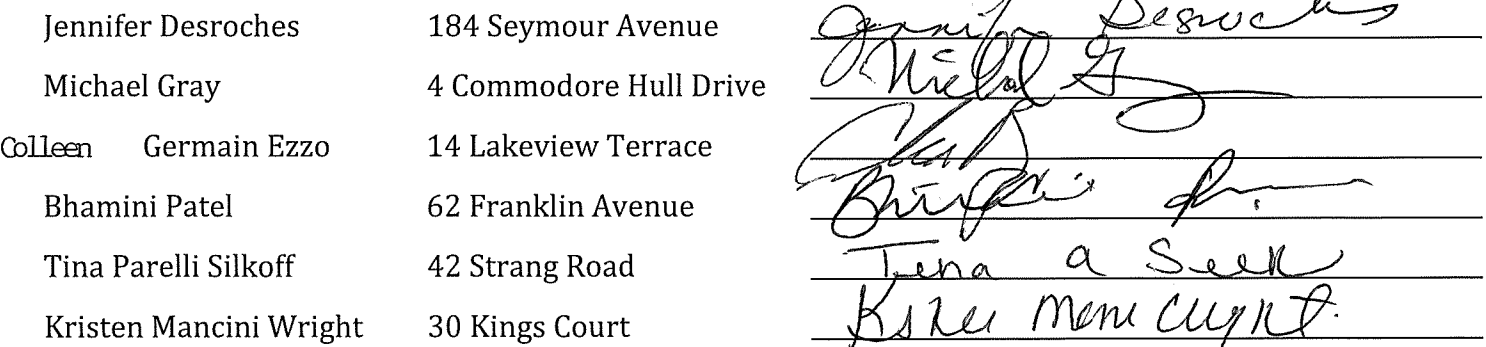 Jennifer Desroches 184 Seymour Avenue Jennifer Desroches
Michael Gray 4 Commodore Hull Drive
Colleen Germain Ezzo 14 Lakeview Terrace
Bhamini Patel 62 Franklin Avenue
Tina Parelli Silkoff 42 Strang Road Tina a
Kristen Mancini Wright 30 Kings Court